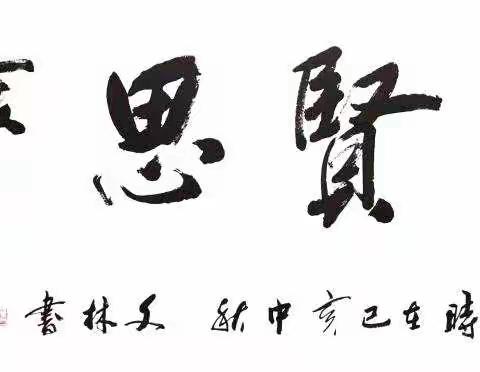 賢思
時在己亥中秋 文林書